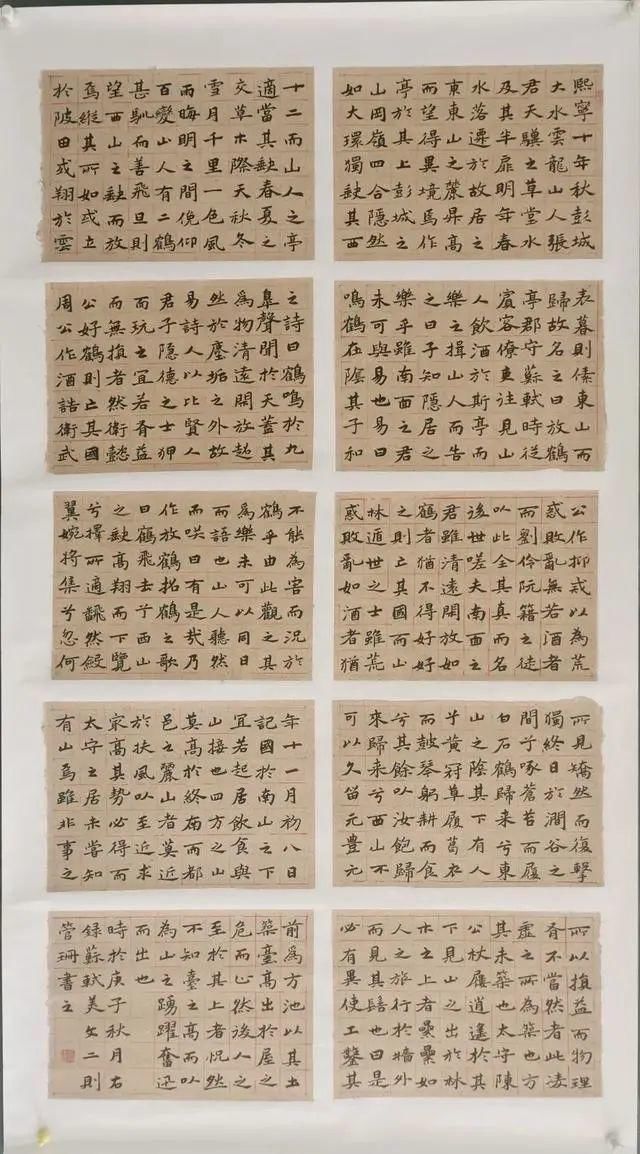 熙寧十年秋彭城
大水雲龍山人張
君天驥之草堂水
及其半扉明年春
水落遷於故居之
東東山之麓昇高
而望得異境焉作
亭於其上彭城之
山岡嶺四合隱然
如大環獨缺其西
十二而山人之亭
適當其缺春夏之
交草木際天秋冬
雪月千里一色風
雨晦明之間俛仰
百變山人有二鶴
甚馴而善飛旦則
望西山之缺而放
焉縱其所如或立
於陂田或翔於雲
表暮則傃東山而
歸故名之曰放鶴
亭郡守蘇軾時從
賓客僚吏往見山
人飲酒於斯亭而
樂之揖山人而告
之曰子知隱居之
樂乎雖南面之君
未可與易也易曰
鳴鶴在陰其子和
之詩曰鶴鳴於九
皋聲聞於天蓋其
為物清遠閑放超
然於塵垢之外故
易詩人以比賢人
君子隱德之士狎
而玩之宜若有益
而無損者然衛懿
公好鶴則亡其國
周公作酒誥衛武
公作抑戒以為荒
惑敗亂無若酒者
而劉伶阮籍之徒
以此全其真而名
後世嗟夫南面之
君雖清遠閑放如
鶴者猶不得好好
之則亡其國而山
林遁世之士雖荒
惑敗亂如酒者猶
不能為害而況於
鶴乎由此觀之其
為樂未可以同日
而語也山人聽然
而咲曰有是哉乃
作放鶴招鶴之歌
曰鶴飛去兮西山
之缺高翔而下覽
兮擇所適翻然斂
翼婉將集兮忽何
所見矯然而復擊
獨終日於澗谷之
間兮啄蒼苔而履
白石鶴歸來兮東
山之陰其下有人
兮黃冠草履葛衣
而鼓琴躬耕而食
兮其餘以汝飽歸
來歸來兮西山不
可以久留元豐元
年十一月初八日
記國於南山之下
宜若起居飲食與
山接也四方之山
莫高於終南而都
邑之麗山者莫近
於扶風以至近求
最高其勢必得而
太守之居未嘗知
有山焉雖非事之
所以損益而物理
有不當然者此凌
虛之所為築也方
其未築也太守陳
公杖屨逍遙於其
下見山之出於林
木之上者纍纍如
人之旅行於墻外
而見其髻也曰是
必有異使工鑿其
前為方池以其土
築臺高出於屋之
危而止然後人之
至於其上者怳然
不知臺之高而以
為山之踴躍奮迅
而出也
時於庚子秋月右
錄蘇軾美文二則
管珊書之